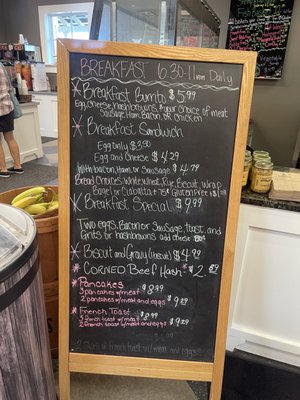 BREAKFAST 6:30-11am Daily
* Breakfast Burrito $5.99
Egg, cheese, hashbrowns, & your choice of meat
Sausage, Ham, Bacon, or Chicken
* Breakfast Sandwich
Egg only $3.50
Egg and Cheese $4.29
With bacon, ham, or Sausage $4.79
Bread Choices: White, Wheat, Rye, Biscuit, Wrap
Bagel or Ciabatta + 75¢ Gluten Free
* Breakfast Special $9.99
Two eggs, Bacon or Sausage, Toast, and
Grits or hashbrowns add cheese
* Biscuit and Gravy (1 biscuit) $4.99
* CORNED Beef Hash * $2
* Pancakes $8.99
3 pancakes w/meat
2 pancakes w/meat and eggs $9.29
* French Toast $8.99
3 French toast w/meat
2 French toast w/meat and eggs $9.29
French toast w/ meat and eggs